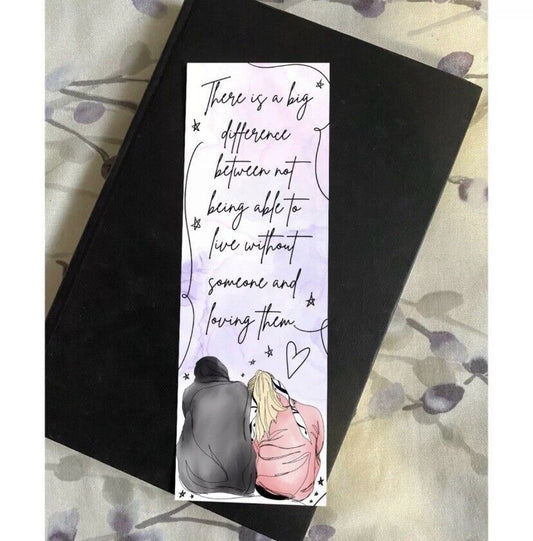 There is a big
difference
between not
being able to
live without
someone and
loving them.